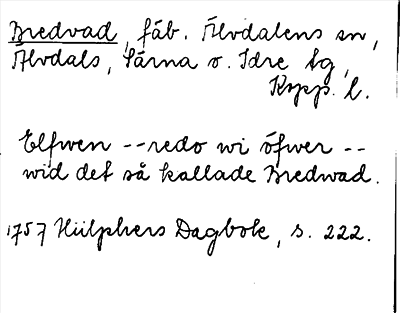 Bredvad, fäb. Älvdalens sn,
Älvdals, Särna o. Idre tg,
Kopp. l.
Elfwen -- redo wi öfwer --
wid det så kallade Bredwad.
1757 Hülphers Dagbok, s. 222.